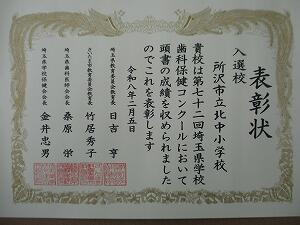 表彰状
入選校
所沢市立北中小学校
貴校は第七十二回埼玉県学校
歯科保健コンクールにおいて
頭書の成績を収められました
のでこれを表彰します
令和八年二月五日
埼玉県教育委員会教育長 日吉 亨
さいたま市教育委員会教育長 竹居秀子
埼玉県歯科医師会会長 桑原 栄
埼玉県学校保健会会長 金井忠男